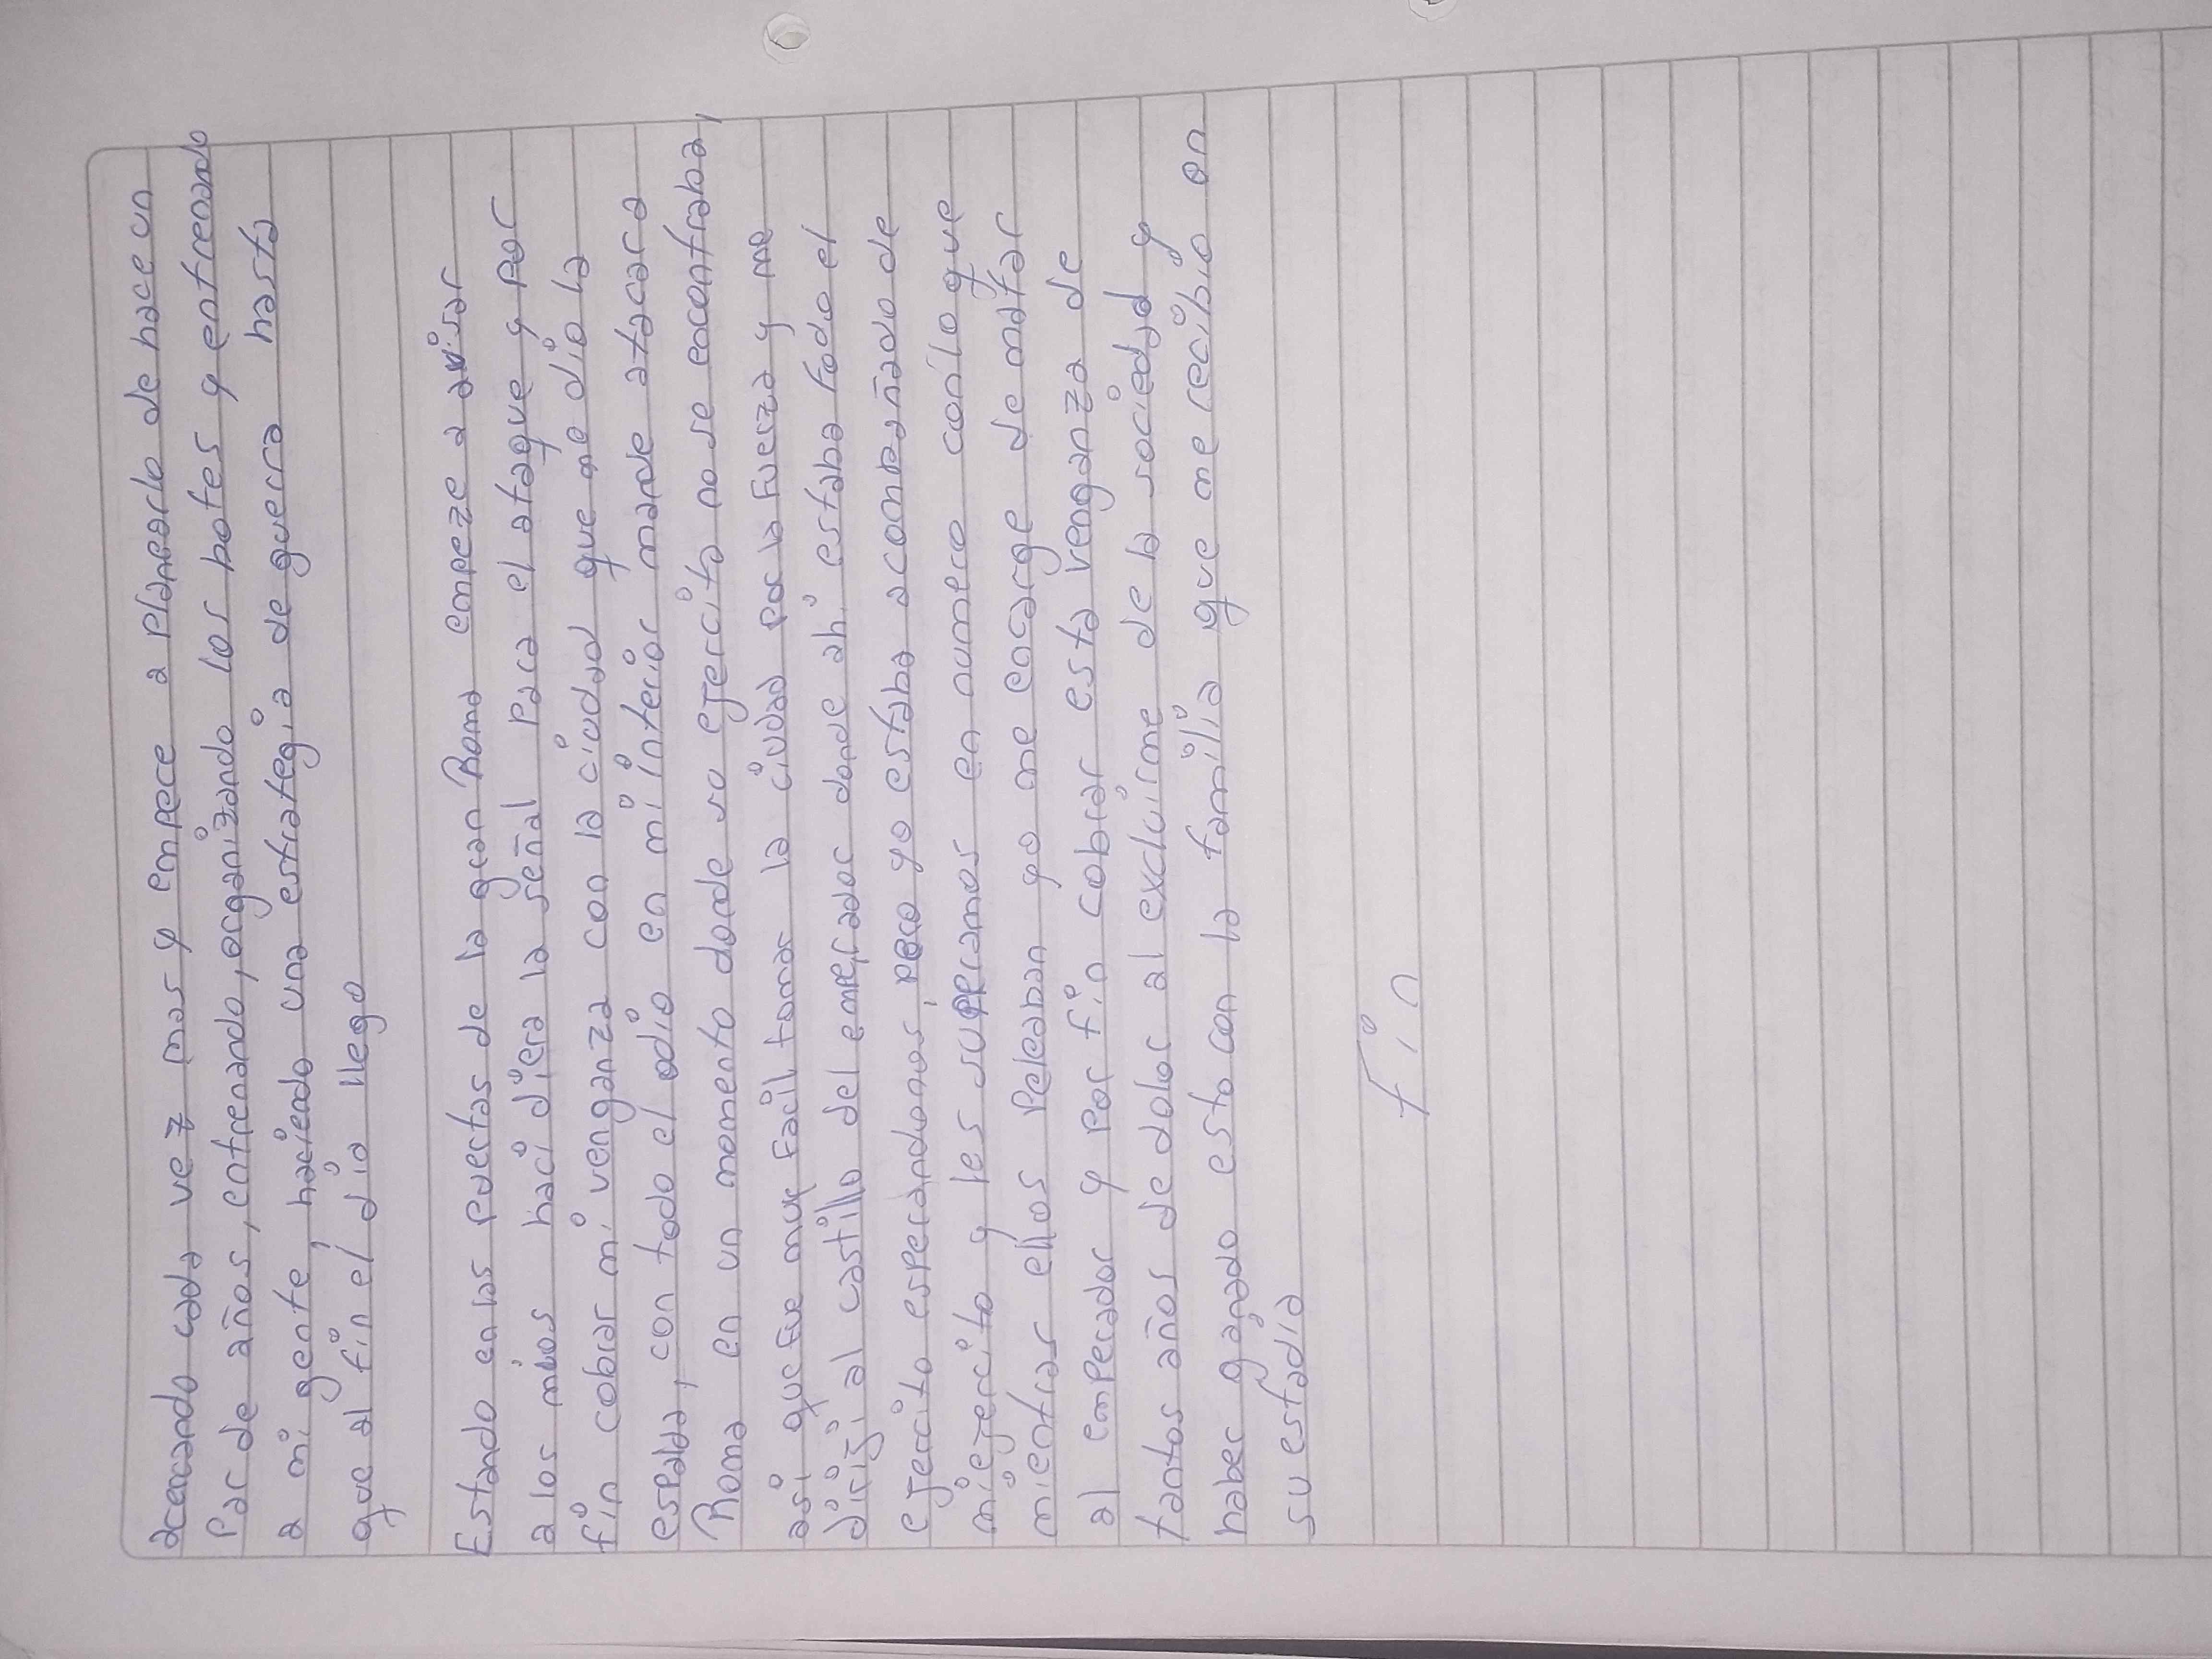 acercando cada vez mas y empece a planearlo de hace un
Par de años, entrenando, organizando los botes y entrenando
a mi gente, haciendo una estrategia de guerra hasta
que al fin el dia llego
Estando en las puertas de la gran Roma empeze a avisar
a los mios haci diera la señal para el ataque y por
fin cobrar mi venganza con la ciudad que me dio la
espalda, con todo el odio en mi interior mande atacar a
Roma en un momento donde su ejercito no se encontraba,
asi que fue muy facil tomar la ciudad por la fuerza y me
dirigi al castillo del emperador donde ahi estaba todo el
ejercito esperandonos, pero yo estaba acompañado de
mi ejercito y les superamos en numero con lo que
mientras ellos peleaban yo me encarge de matar
al emperador y por fin cobrar esta venganza de
tantos años de dolor al excluirme de la sociedad y
haber ganado esto con la familia que me recibio en
su estadia
Fin